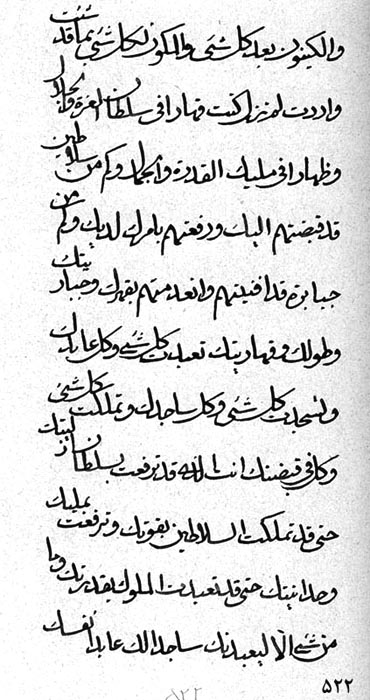 والكينون بعد كل شئ والمكون لكل شئ بما قد شئت
واردت لم تزل كنت قهارا في سلطان العزة والجلال
وظهارا في مليك القدرة والجمال وكم من سلاطين
قد قبضتهم اليك ورفعتهم بامرك لديك وكم من
جبابرة قد افنيتهم وانعدمتهم بقهرك وجباريتك
وطولك وقهاريتك تعبدت كل شئ وكل عابد لك
وتسجدت كل شئ وكل ساجد لك وتملكت كل شئ
وكل في قبضتك انت الله قد ترفعت بسلطان
حتى قد تملكت السلاطين بقوتك وترفعت بمليك
وحدانيتك حتى قد تعبدت الملوك بقدرتك وما
من شئ الا ليعبدنك ساجدا لك عابدا نفسك
۵۲۲